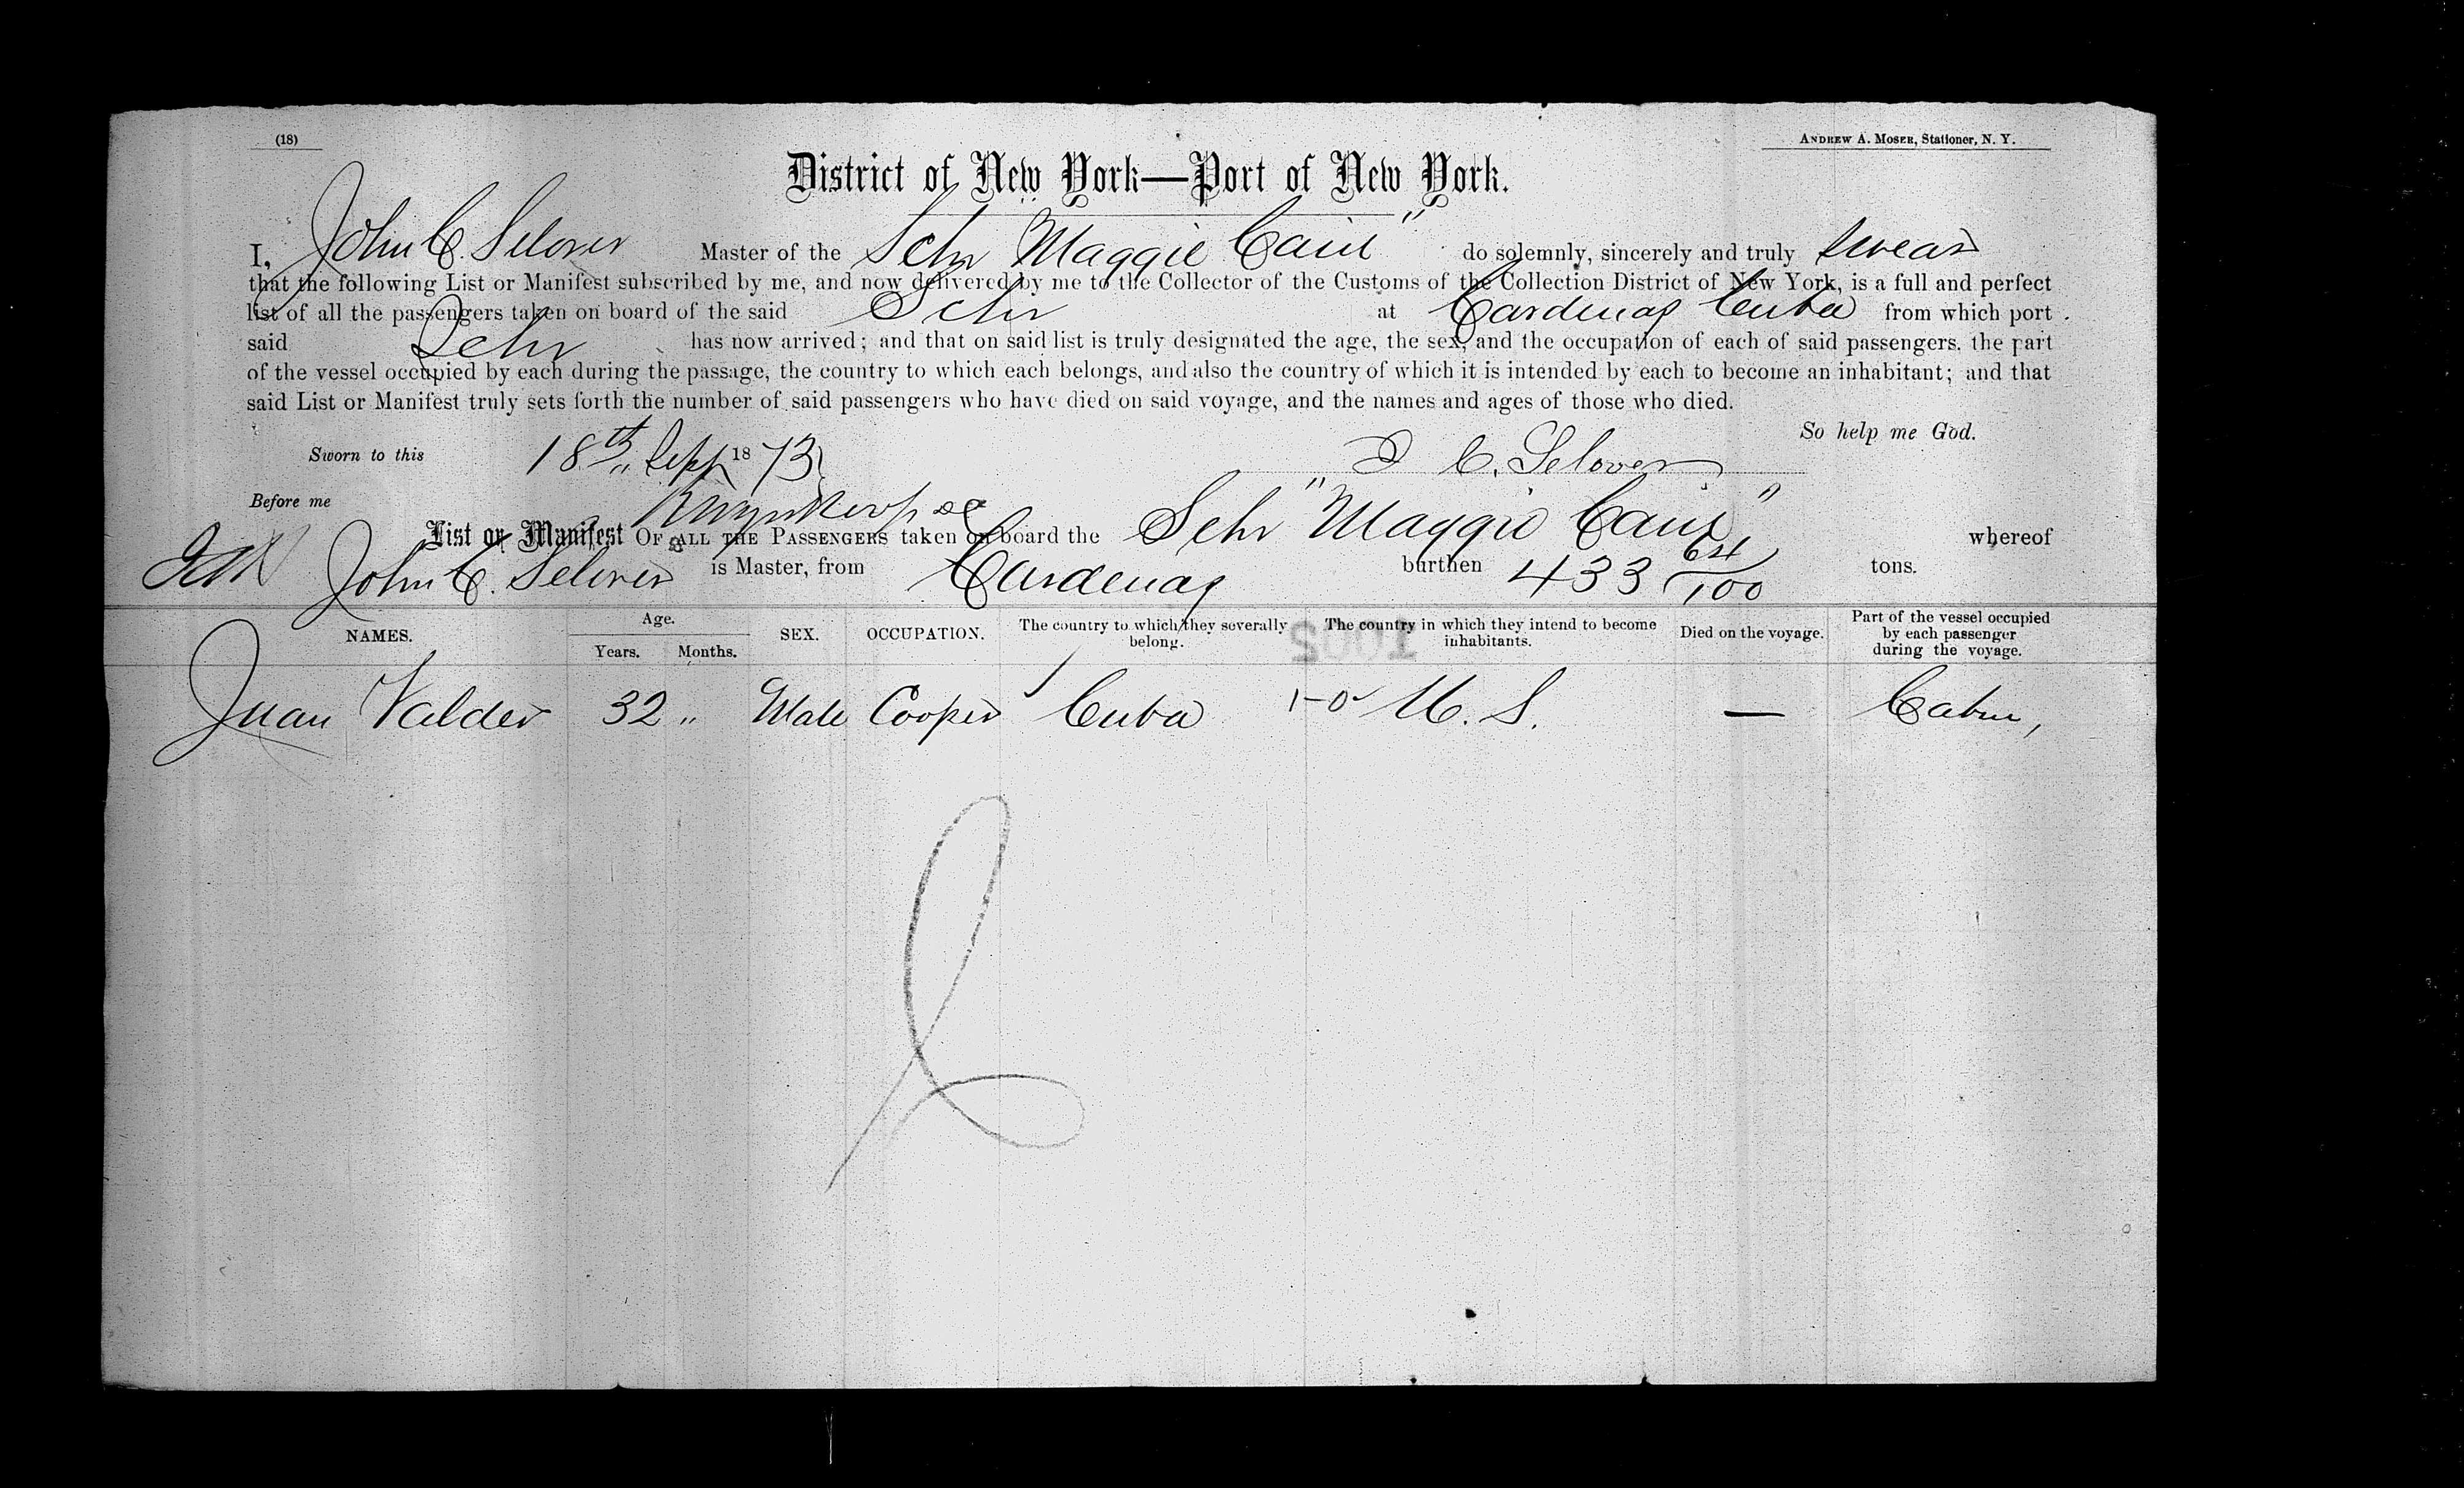 (18)
ANDREW A. MOSER, Stationer, N. Y.
District of New York—Port of New York.
I, John C. Selover Master of the Schr "Maggie Cain" do solemnly, sincerely and truly swear
that the following List or Manifest subscribed by me, and now delivered by me to the Collector of the Customs of the Collection District of New York, is a full and perfect
list of all the passengers taken on board of the said Schr at Cardenas Cuba from which port
said Schr has now arrived; and that on said list is truly designated the age, the sex, and the occupation of each of said passengers, the part
of the vessel occupied by each during the passage, the country to which each belongs, and also the country of which it is intended by each to become an inhabitant; and that
said List or Manifest truly sets forth the number of said passengers who have died on said voyage, and the names and ages of those who died.
So help me God.
Sworn to this 18th Sept 1873 J C. Selover
Before me
List or Manifest OF ALL THE PASSENGERS taken on board the Schr "Maggie Cain" whereof
John C. Selover is Master, from Cardenas burthen 433 64/100 tons.
NAMES. Age. Years. Months. SEX. OCCUPATION. The country to which they severally belong. The country in which they intend to become inhabitants. Died on the voyage. Part of the vessel occupied by each passenger during the voyage.
Juan Valder 32 " Male Cooper Cuba U. S. — Cabin,